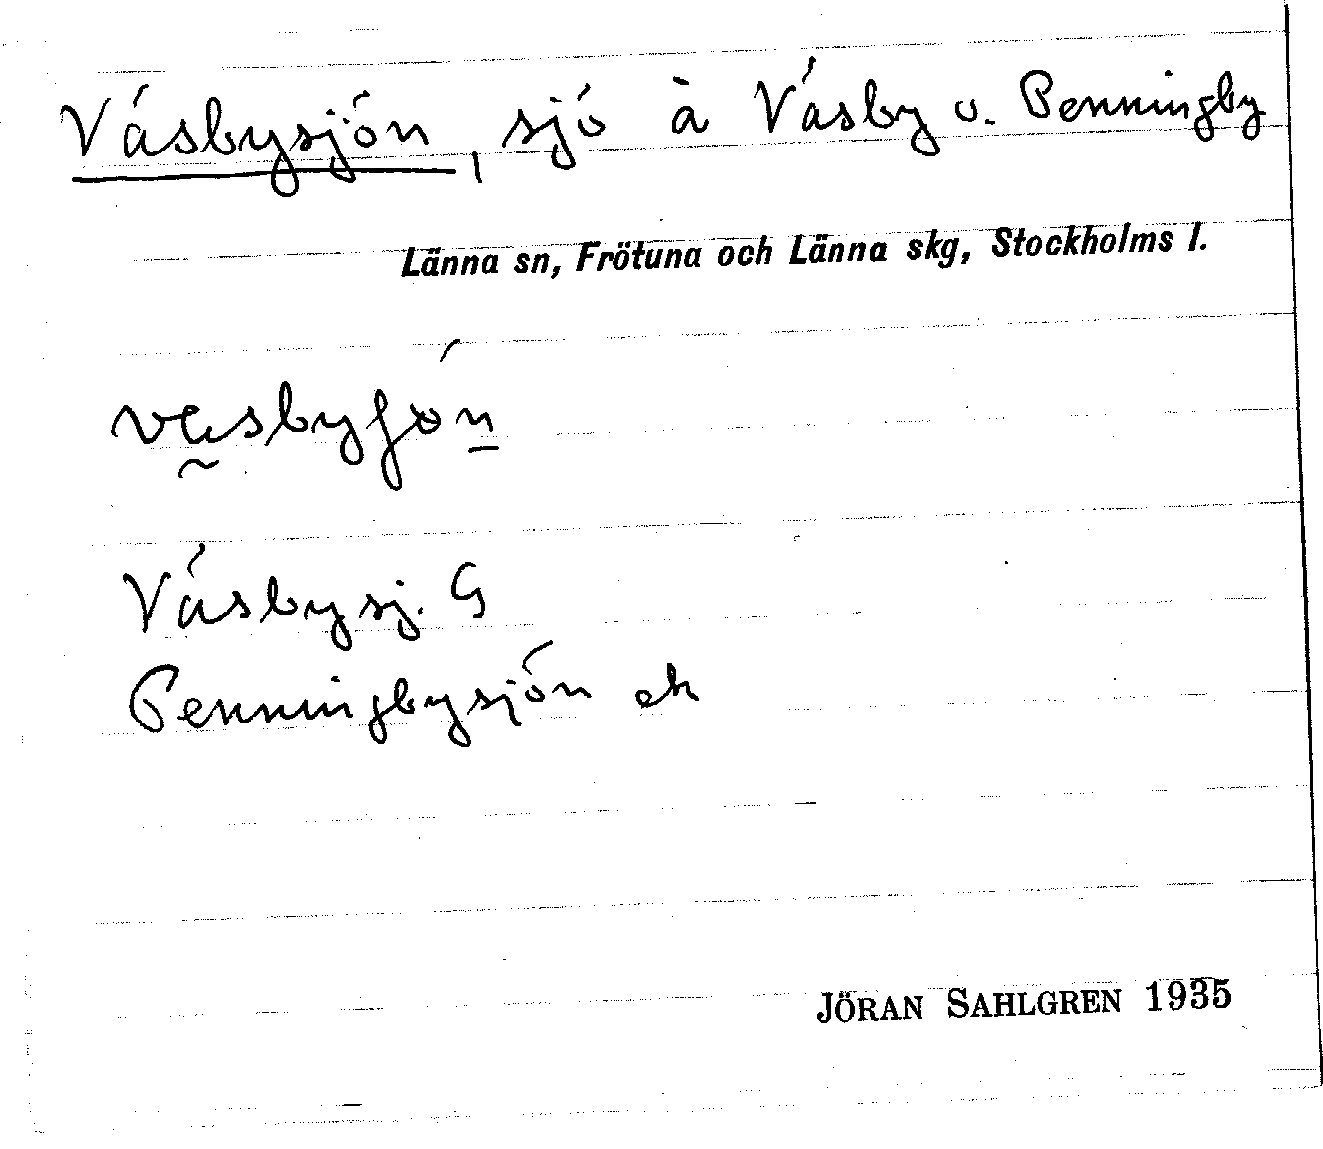 Väsbysjön, sjö å Väsby o. Penningby
Länna sn, Frötuna och Länna skg, Stockholms l.
Väsbysj. G
Penningbysjön ek
JÖRAN SAHLGREN 1935